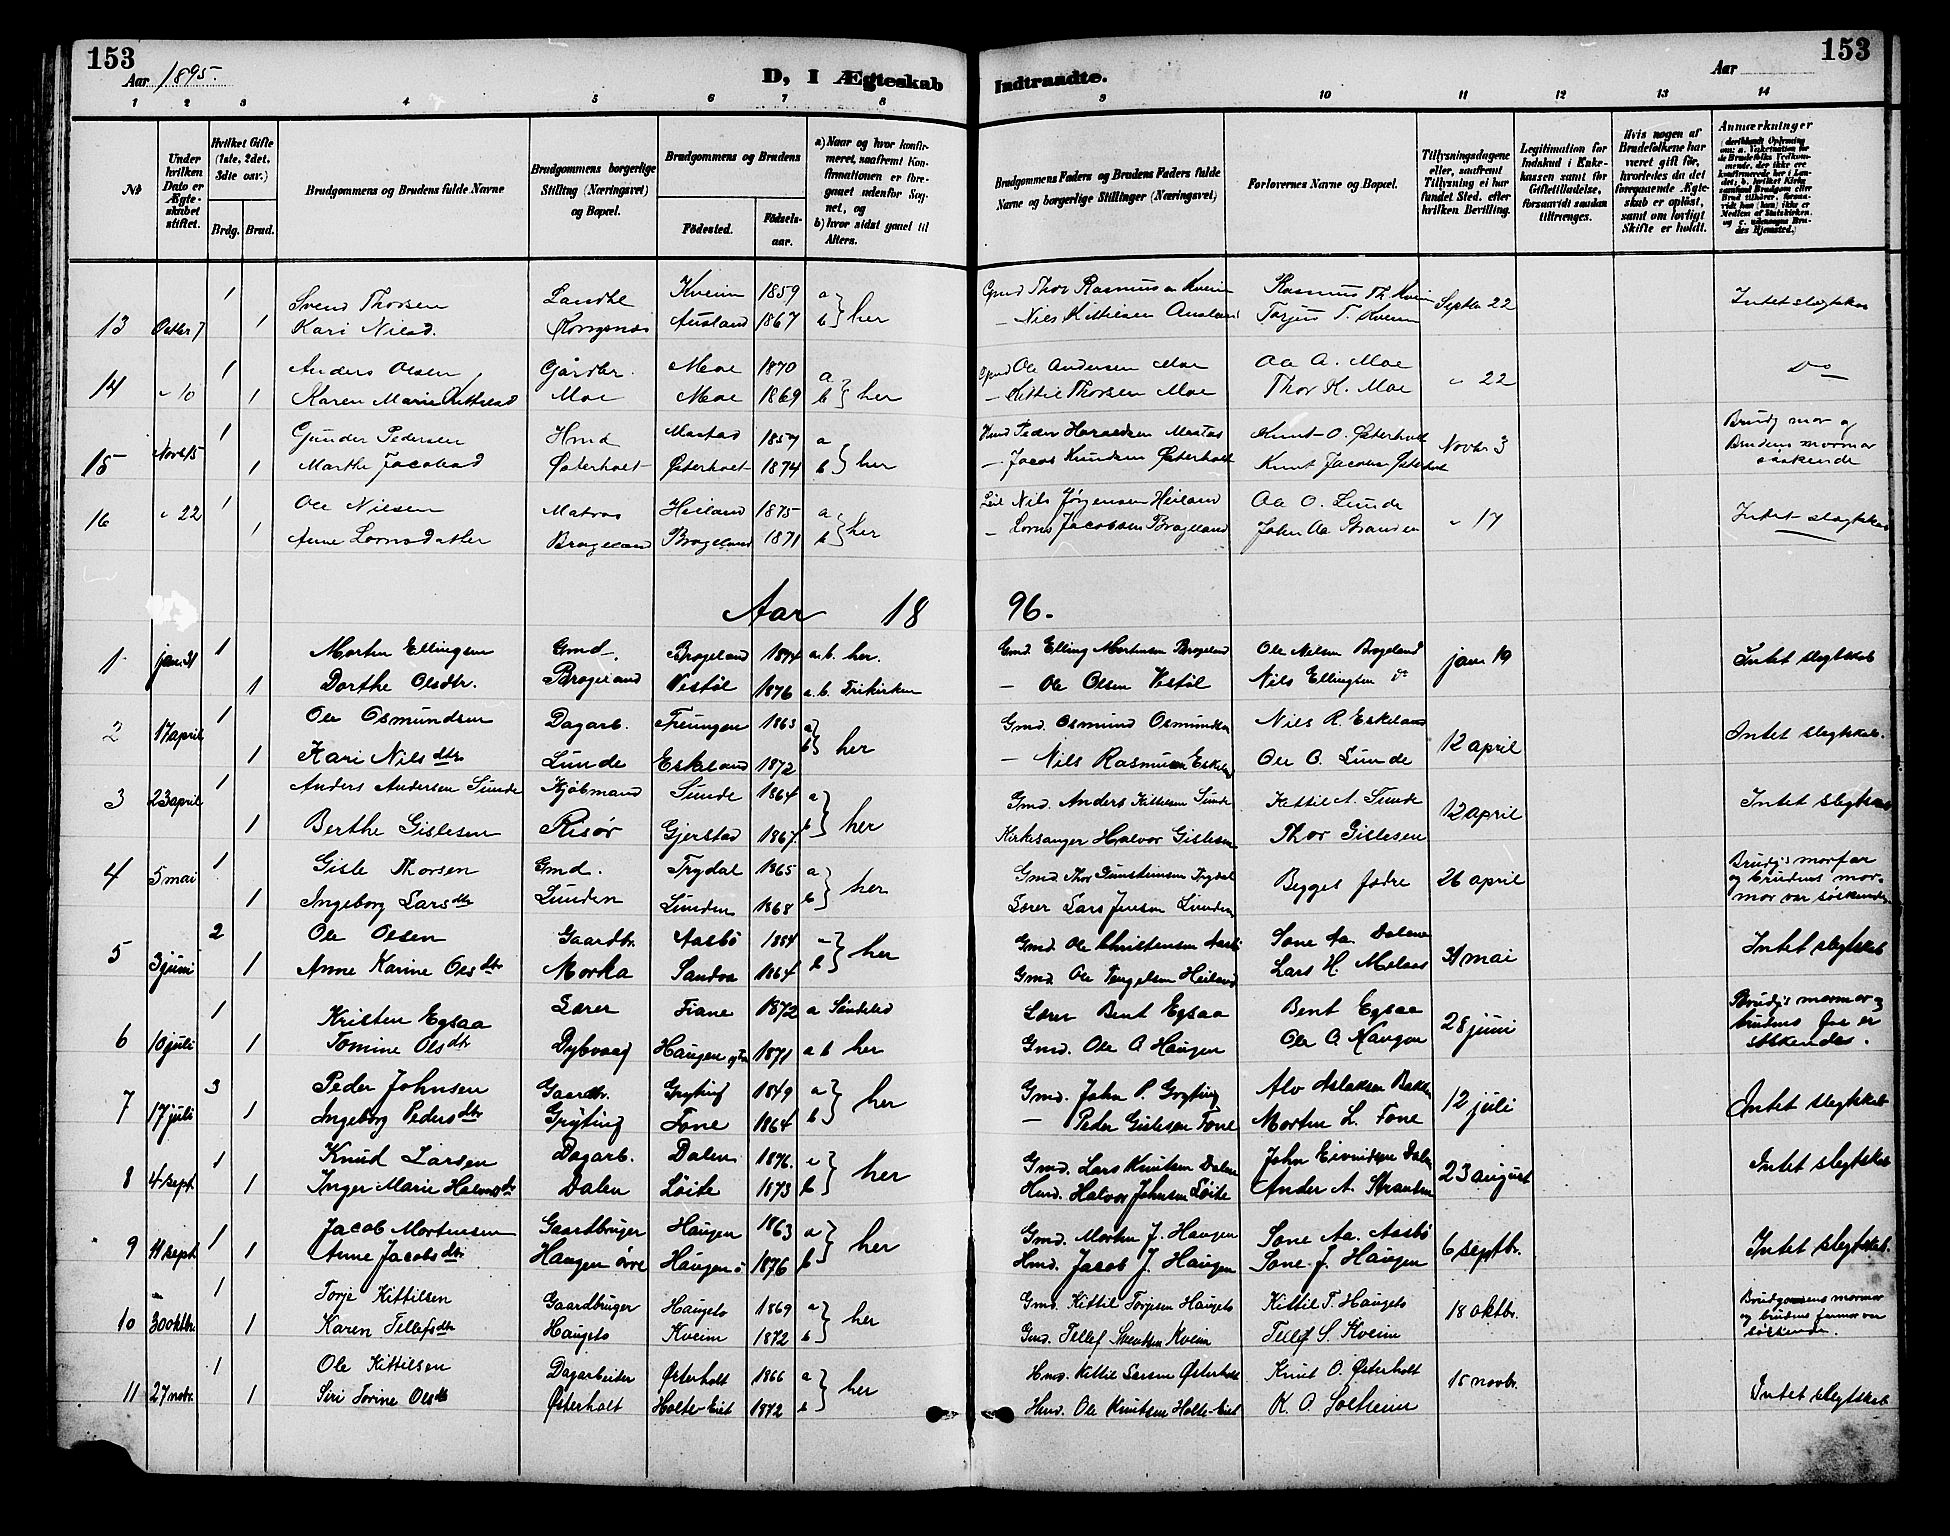 153
Aar 1895.
D, I Ægteskab
Indtraadte.
Aar
153
1 2 3 4 5 6 7 8 9 10 11 12 13 14
№
Under hvilken Dato er Ægteskabet stiftet.
Hvilket Gifte (1ste, 2det, 3die osv.)
Brdg. Brud.
Brudgommens og Brudens fulde Navne
Brudgommens borgerlige Stilling (Næringsvei) og Bopæl.
Brudgommens og Brudens
Fødested. Fødselsaar.
a) Naar og hvor konfirmeret, saafremt Konfirmationen er foregaaet udenfor Sognet, og
b) hvor sidst gaaet til Alters.
Brudgommens Faders og Brudens Faders fulde Navne og borgerlige Stillinger (Næringsvei)
Forlovernes Navne og Bopæl.
Tillysningsdagene eller, saafremt Tillysning ei har fundet Sted, efter hvilken Bevilling.
Legitimation for Indskud i Enkekassen samt for Giftetilladelse, forsaavidt saadan tiltrænges.
Hvis nogen af Brudefolkene har været gift før, hvorledes da det foregaaende Ægteskab er opløst, samt om lovligt Skifte er holdt.
Anmærkninger
13 Octbr 7 1 Svend Thorsen Landhl Kveim 1859 a Gmd Thor Rasmusen Kveim Rasmus Th. Kveim Septbr 22 Intet slegtskab
1 Kari Nilsd. Kongsnæs Ausland 1867 b her – Nils Kittilsen Ausland Torjus T. Kveim
14 " 10 1 Anders Olsen Gårdbr. Moe 1870 a Gmd Ole Andersen Moe Aa A. Moe " 22 Do
1 Karen Marie Kittilsd Moe Moe 1869 b her – Kittil Thorsen Moe Thor K. Moe
15 Novbr 15 1 Gunder Pedersen Hmd 1857 a Hmd Peder Knut O. Østerholt Novbr 3 Brudg mor og
1 Marthe Jacobsd Østerholt Østerholt 1874 b her – Jacob Knudsen Østerholt Knut Jacobsen Østerholt Brudens mormor
søskende
16 " 22 1 Ole Nielsen Matros Heiland 1875 a Nils Jørgensen Heiland Aa O. Lunde " 17 Intet slegtskab
1 Anne Lornsdatter Brogeland Brogeland 1871 b her – Lorns Jacobsen Brogeland John Aa Stranden
Aar 18 96.
1 jan. 31 1 Morten Ellingsen Gmd. Brogeland 1874 a.b. her. Gmd. Elling Mortensen Brogeland Ole Nilsen Brogeland jan 19 Intet slegtskab
1 Dorthe Olsdtr. Brogeland Vestøl 1876 a.b. Frikirken – Ole Olsen Vestøl Nils Ellingsen do
2 17 april 1 Ole Osmundsen Dagarb. Treungen 1863 a Gmd. Osmund Osmundsen Nils R. Eskeland 12 april Intet slegtskab.
1 Kari Nilsdtr Lunde Eskeland 1872 b her – Nils Rasmusen Eskeland Ole O. Lunde
3 23 april 1 Anders Andersen Sunde Kjøbmand Sunde 1864 a Gmd. Anders Kittilsen Sunde Kittil A. Sunde 12 april Intet slegtskab
1 Berthe Gislesen Risør Gjerstad 1867 b her Kirkesanger Halvor Gislesen Thor Gislesen
4 5 mai 1 Gisle Thorsen Gmd. Trydal 1865 a Gmd. Thor Gunsteinsen Trydal Begges fædre 26 april Brudg's morfar
1 Ingeborg Larsdtr Lunden Lunden 1868 b her Lærer Lars Jensen Lunden og brudens mormor var søskende
5 3 juni 2 Ole Olsen Gaardbr. Aasbø 1854 a Gmd. Ole Christensen Aasbø Sone Aa. Dalene 31 mai Intet slegtskab
1 Anne Karine Olsdtr Morka Sandvs 1864 b her Gmd. Ole Tengelsen Heiland Lars H. Melaas
6 10 juli 1 Kristen Egsaa Lærer Fiane 1872 a Søndeled Lærer Bent Egsaa Bent Egsaa 28 juni Brudg's mormor og
1 Tomine Olsdtr Dybvaag Haugen 1871 a b her Gmd. Ole O. Haugen Ole O. Haugen brudens far er
søskende.
7 17 juli 3 Peder Johnsen Gaardbr. Gryting 1849 a Gmd. John P. Gryting Alv Aslaksen Bakken 12 juli Intet slegtskab
1 Ingeborg Pedersdtr Grÿting Fone 1864 b her – Peder Gislesen Fone Morten L. Fone
8 4 sept. 1 Knud Larsen Dagarb. Dalen 1876. a Gmd. Lars Knutsen Dalen John Eivindsen Dalen 23 august Intet slegtskab
1 Inger Marie Halvorsdtr Dalen Løite 1873 b her Hmd. Halvor Johnsen Løite Ander A. Stranden
9 11 sept. 1 Jacob Mortensen Gaardbruger Haugen 1863 a Gmd. Morten J. Haugen Sone Aa. Aasbø 6 septbr. Intet slegtskab.
1 Anne Jacobsdtr Haugen øvre Haugen 1876 b her Hmd. Jacob J. Haugen Sone J. Haugen
10 30 oktbr. 1 Torje Kittilsen Gaardbruger Haugets 1869 a Gmd. Kittil Torjesen Haugets Kittil T. Haugets 18 oktbr. Brudgomens mormor
1 Karen Tellefsdtr Haugets Kveim 1872 b her Gmd. Tellef Svendsen Kveim Tellef S. Kveim og brudens farmor var
søskende.
11 27 novbr. 1 Ole Kittilsen Dagarbeider Østerholt 1866 a Hmd. Kittil Larsen Østerholt Knut O. Østerholt 15 novbr. Intet slegtskab
1 Siri Torine Olsdtr Østerholt Holte-Eiet 1872 b her Hmd. Ole Knutsen Holte-Eiet K. O. Solheim